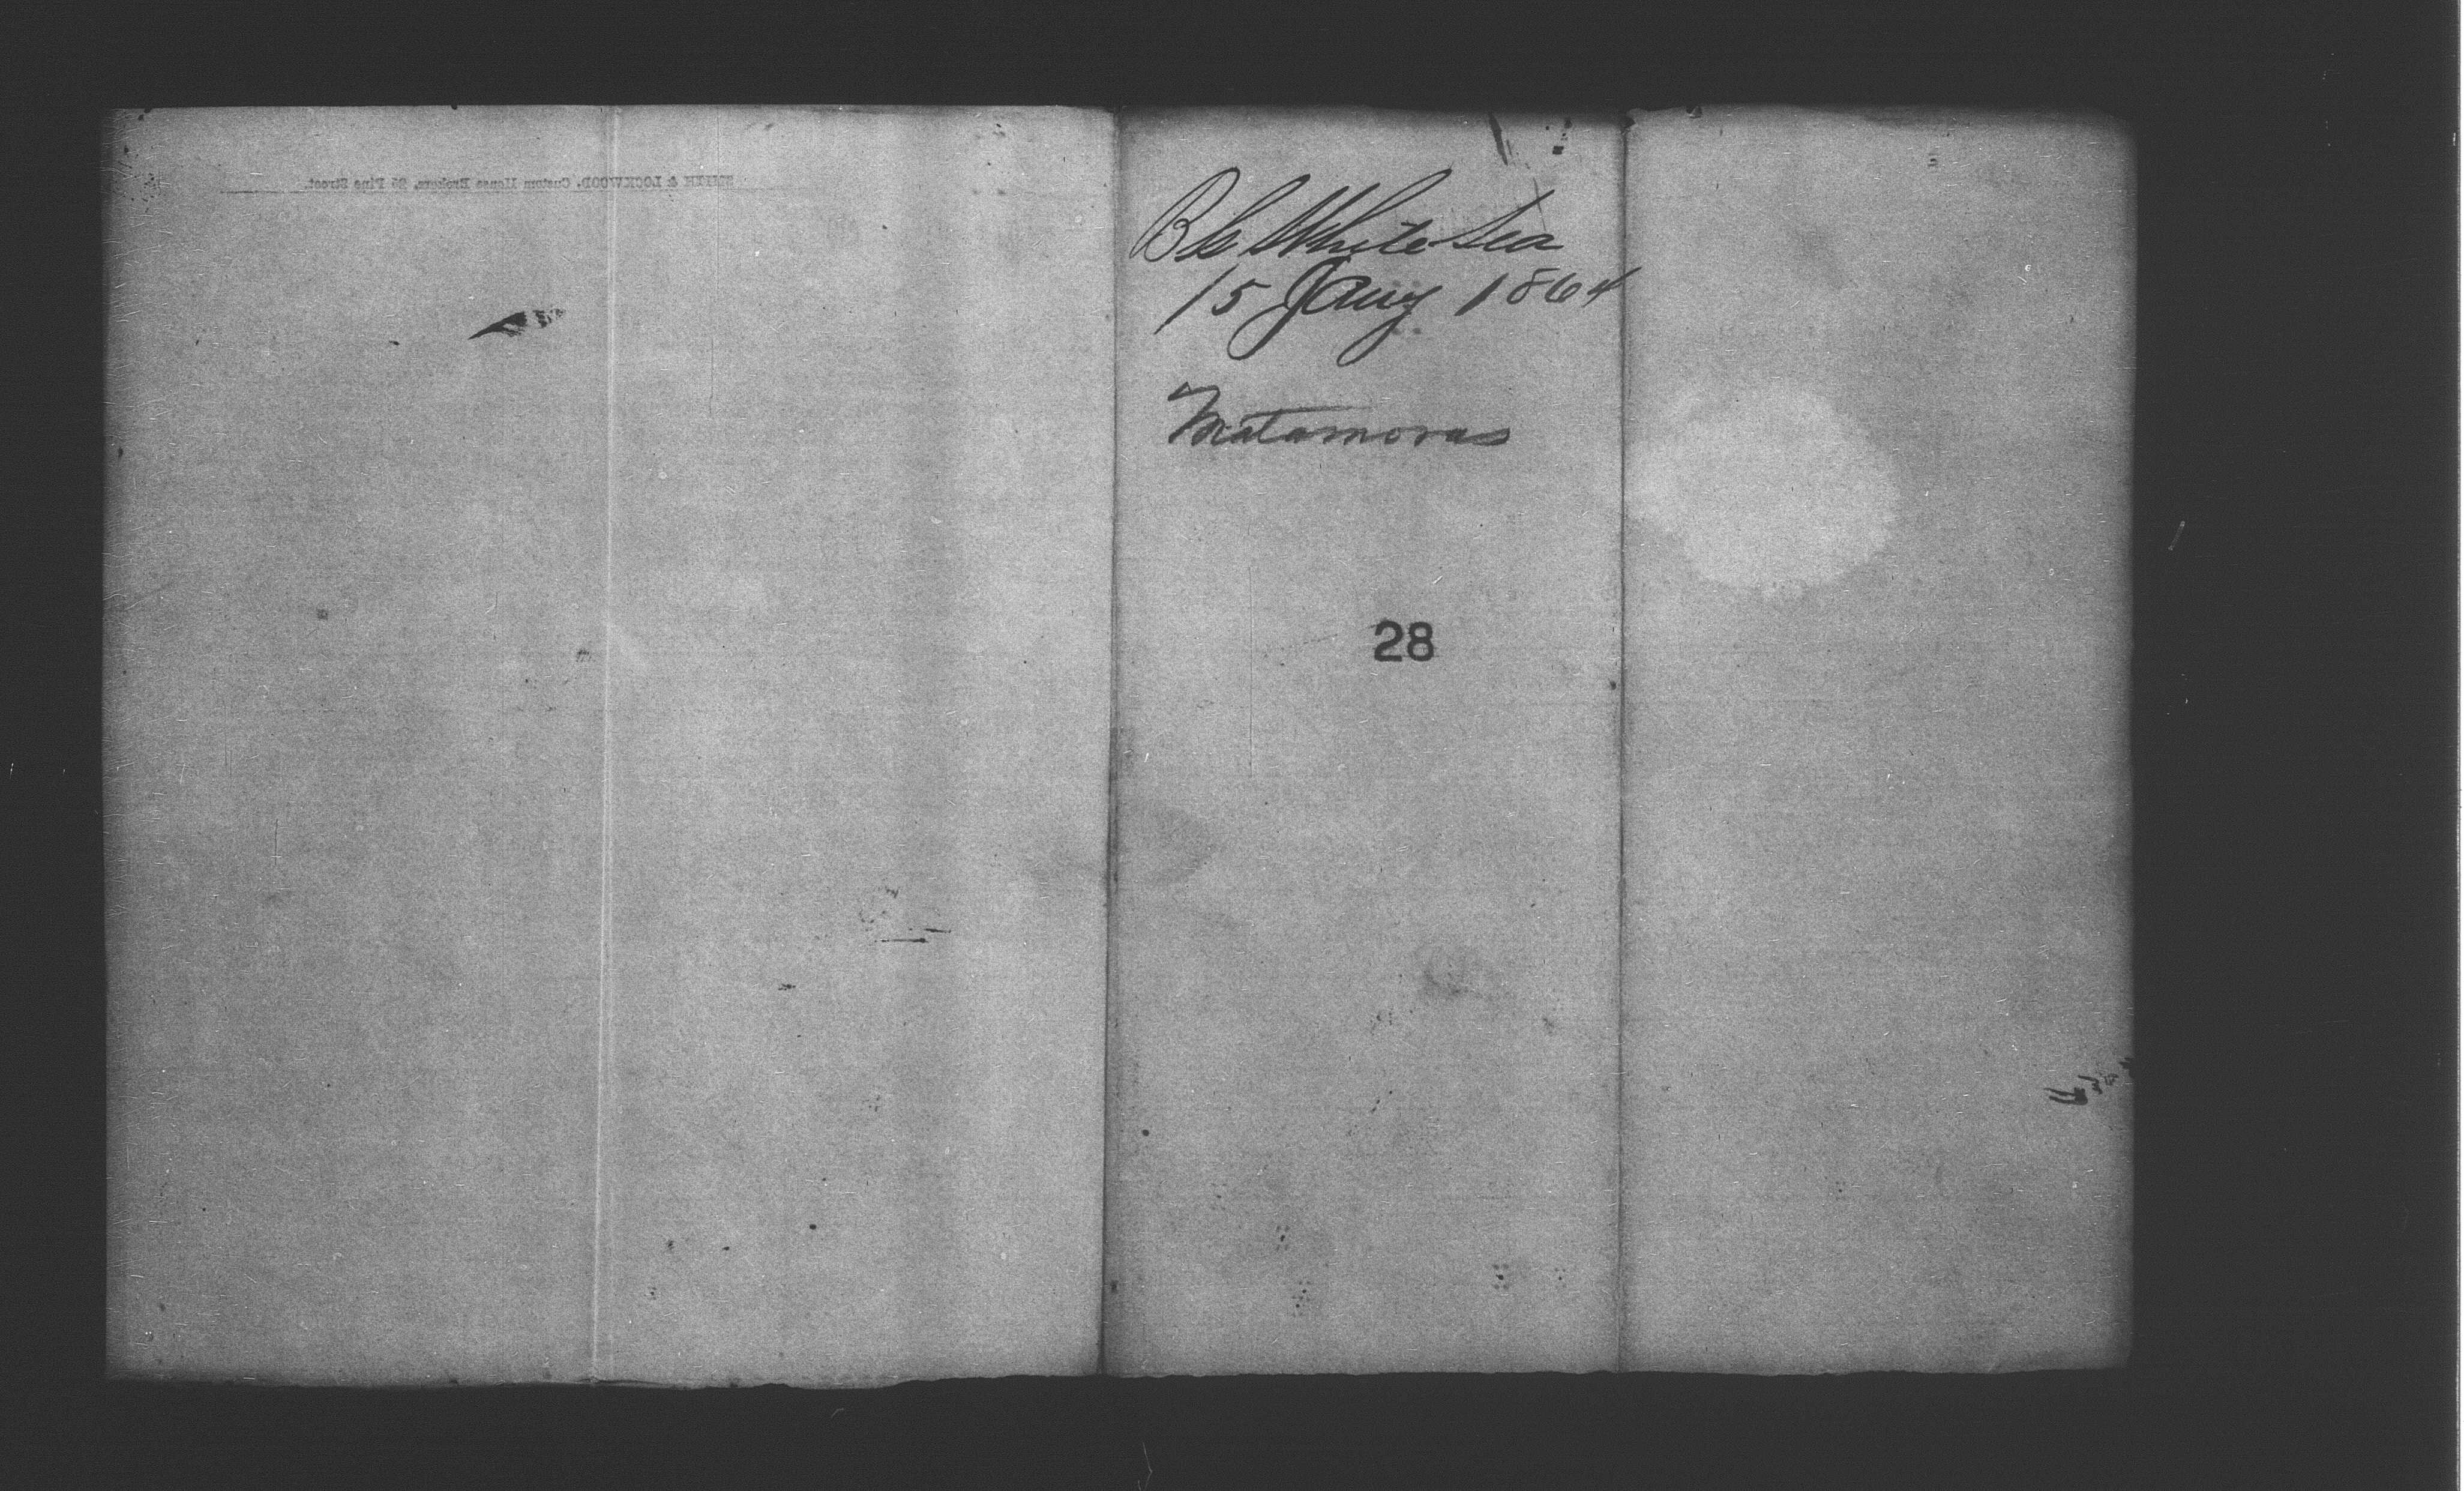 SMITH & LOCKWOOD, Custom House Brokers, 25 Pine Street.
Bk White Sea
15 Jany 1864
Matamoras
28